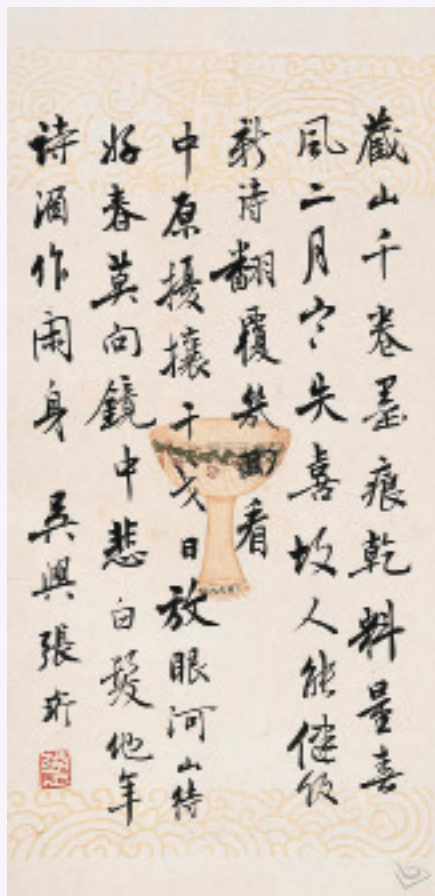 藏山千卷墨痕乾料量春
風二月寒失喜故人能健飯
新詩翻覆幾回看
中原擾攘干戈日放眼河山待
好春莫向鏡中悲白髮他年
詩酒作閑身 吳興張珩